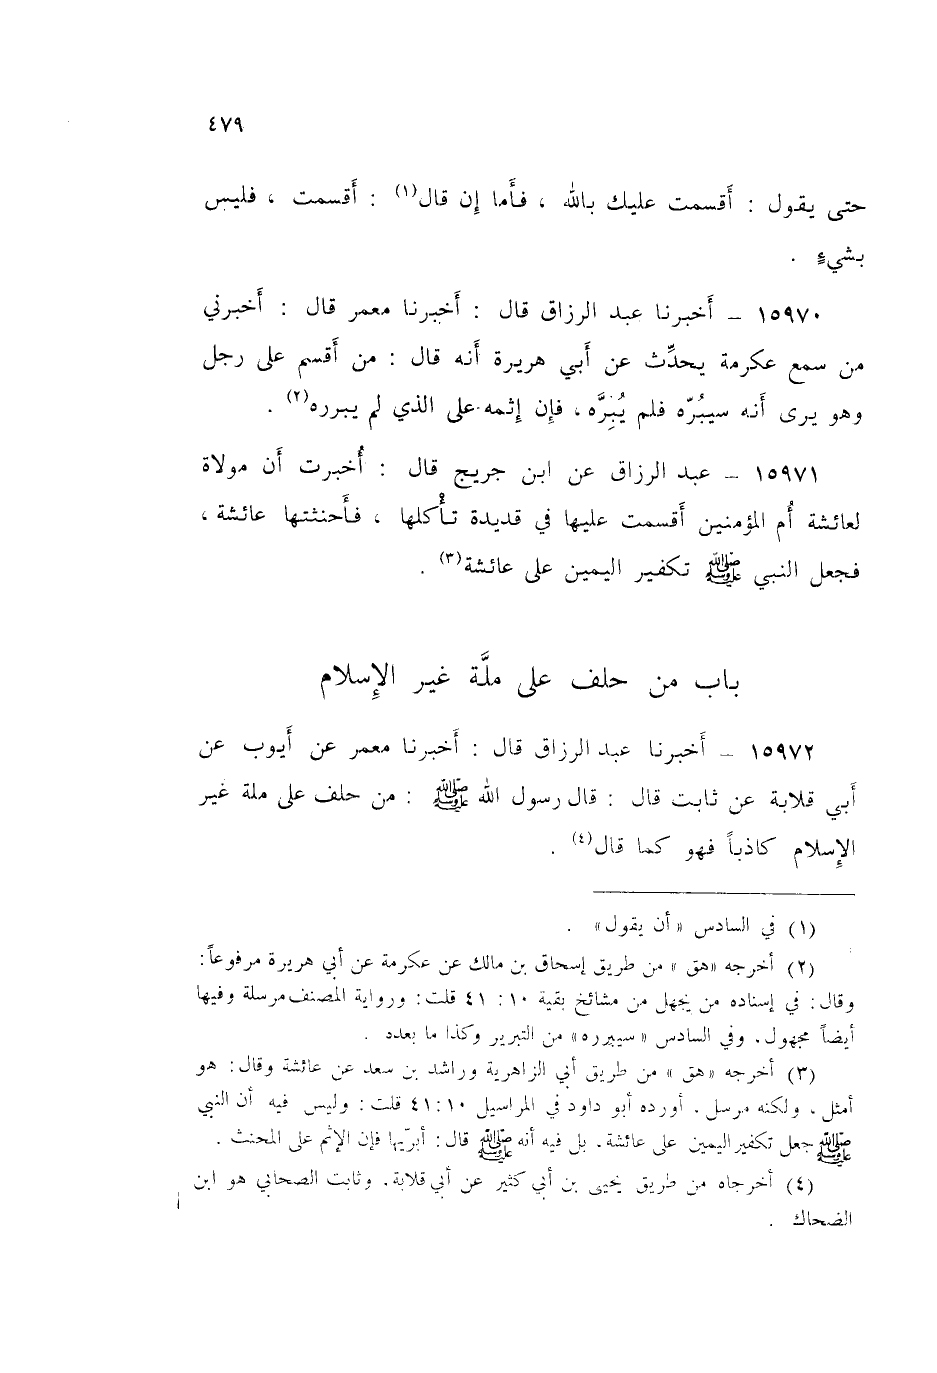 ٤٧٩
حتى يقول : أَقسمت عليك بالله ، فأَما إِن قال(١) : أَقسمت ، فليس
بشيءٍ .
١٥٩٧٠ – أَخبرنا عبد الرزاق قال : أَخبرنا معمر قال : أَخبرني
من سمع عكرمة يحدِّث عن أَبي هريرة أَنه قال : من أَقسم على رجل
وهو يرى أَنه سيبُرّه فلم يُبِرَّه ، فإِن إِثمه على الذي لم يبرره(٢) .
١٥٩٧١ – عبد الرزاق عن ابن جريج قال : أُخبرت أَن مولاة
لعائشة أُم المؤمنين أَقسمت عليها في قديدة تأْكلها ، فأَحنثتها عائشة ،
فجعل النبي ﷺ تكفير اليمين على عائشة(٣) .
باب من حلف على ملَّة غير الإِسلام
١٥٩٧٢ – أَخبرنا عبد الرزاق قال : أَخبرنا معمر عن أَيوب عن
أَبي قلابة عن ثابت قال : قال رسول الله ﷺ : من حلف على ملة غير
الإِسلام كاذباً فهو كما قال(٤) .
(١) في السادس «أن يقول» .
(٢) أخرجه «هق» من طريق إسحاق بن مالك عن عكرمة عن أبي هريرة مرفوعاً:
وقال: في إسناده من يجهل من مشائخ بقية ١٠ : ٤١ قلت: ورواية المصنف مرسلة وفيها
أيضاً مجهول. وفي السادس «سيبرره» من التبرير وكذا ما بعدد .
(٣) أخرجه «هق» من طريق أبي الزاهرية وراشد بن سعد عن عائشة وقال: هو
أمثل. ولكنه مرسل. أورده أبو داود في المراسيل ١٠:٤١ قلت: وليس فيه أن النبي
ﷺ جعل تكفير اليمين على عائشة. بل فيه أنه ﷺ قال: أبرّيها فإن الإثم على المحنث .
(٤) أخرجاه من طريق يحيى بن أبي كثير عن أبي قلابة. وثابت الصحابي هو ابن
الضحاك .